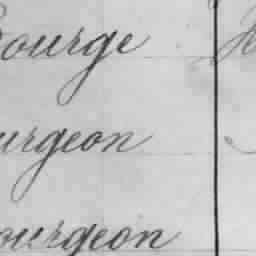 Bourge
urgeon
ourgeon